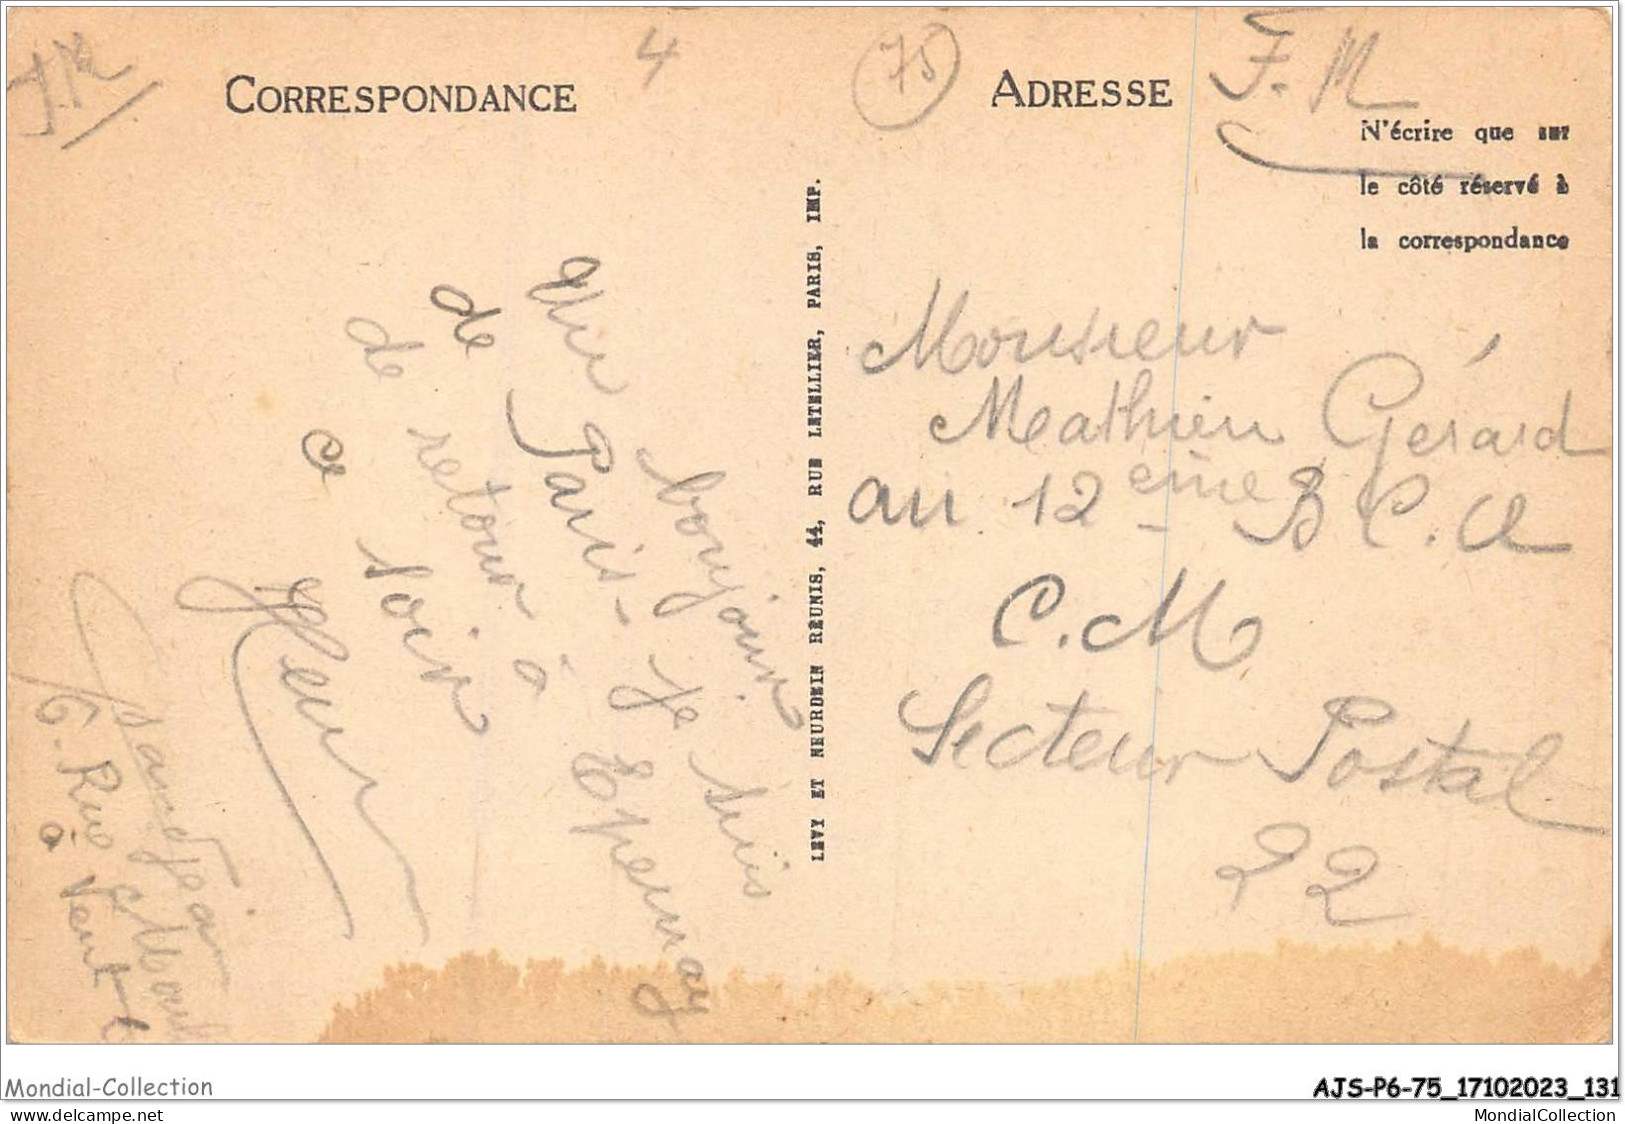 4
75
CORRESPONDANCE
ADRESSE
F.M
N'écrire que sur
le côté réservé à
la correspondance
Un bonjour
de Paris - je suis
de retour à Epernay
ce soir
Fleur
Grandjean
6 - Rue
à
LEVY ET NEURDEIN RÉUNIS, 44, RUE LETELLIER, PARIS, IMP.
Monsieur
Mathieu Gérard
au 12ème B C. A
C.M
Secteur Postal
22
Mondial-Collection
AJS-P6-75_17102023_131
www.delcampe.net
MondialCollection